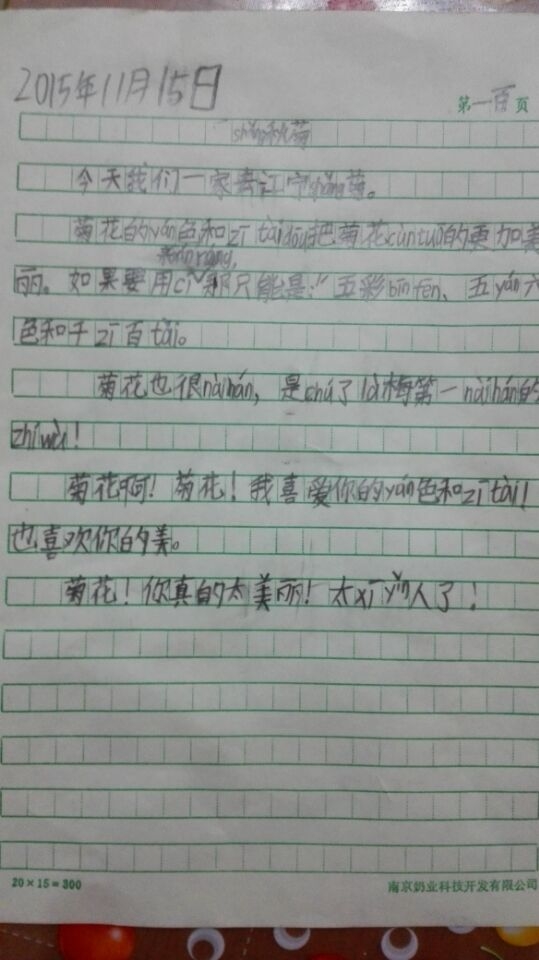 2015年11月15日
第一百页
shǎng秋菊
今天我们一家去江宁shǎng菊。
菊花的yán色和zī tài dōu把菊花chèn tuō的更加美
xíng róng,
丽。如果要用cí 那只能是:"五彩bīn fēn、五yán六
色和千zī百tài。
菊花也很nài hán,是chú了là梅第一nài hán的
zhí wù!
菊花啊!菊花!我喜爱你的yán色和zī tài!
也喜欢你的美。
菊花!你真的太美丽!太xī yǐn人了!
20×15=300
南京奶业科技开发有限公司